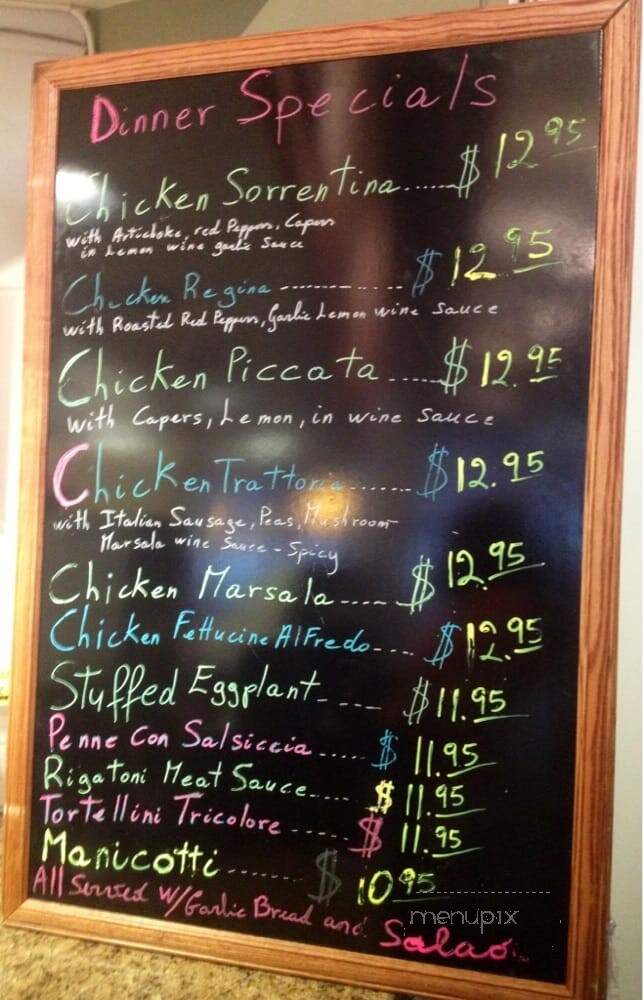 Dinner Specials
Chicken Sorrentina......$12.95
with Artichoke, red Peppers, Capers
in Lemon wine garlic Sauce
Chicken Regina ---------------$12.95
with Roasted Red Peppers, Garlic Lemon wine Sauce
Chicken Piccata .....$12.95
with Capers, Lemon, in wine sauce
Chicken Trattoria.......$12.95
with Italian Sausage, Peas, Mushroom
Marsala wine Sauce - Spicy
Chicken Marsala----$12.95
Chicken Fettucine Alfredo----$12.95
Stuffed Eggplant-----$11.95
Penne Con Salsiccia.....$11.95
Rigatoni Meat Sauce.....$11.95
Tortellini Tricolore------$11.95
Manicotti........$10.95
All Served w/Garlic Bread and Salad.
menupix